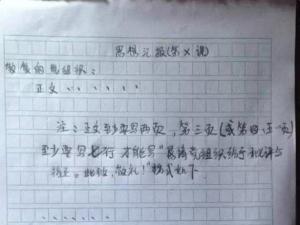 思想汇报(第X课)
敬爱的党组织：
正文......
注：正文至少要写两页，第三页(或第四、五一页)
至少要写七行 才能写"恳请党组织给予批评与
指正。此致，敬礼！"格式如下
......